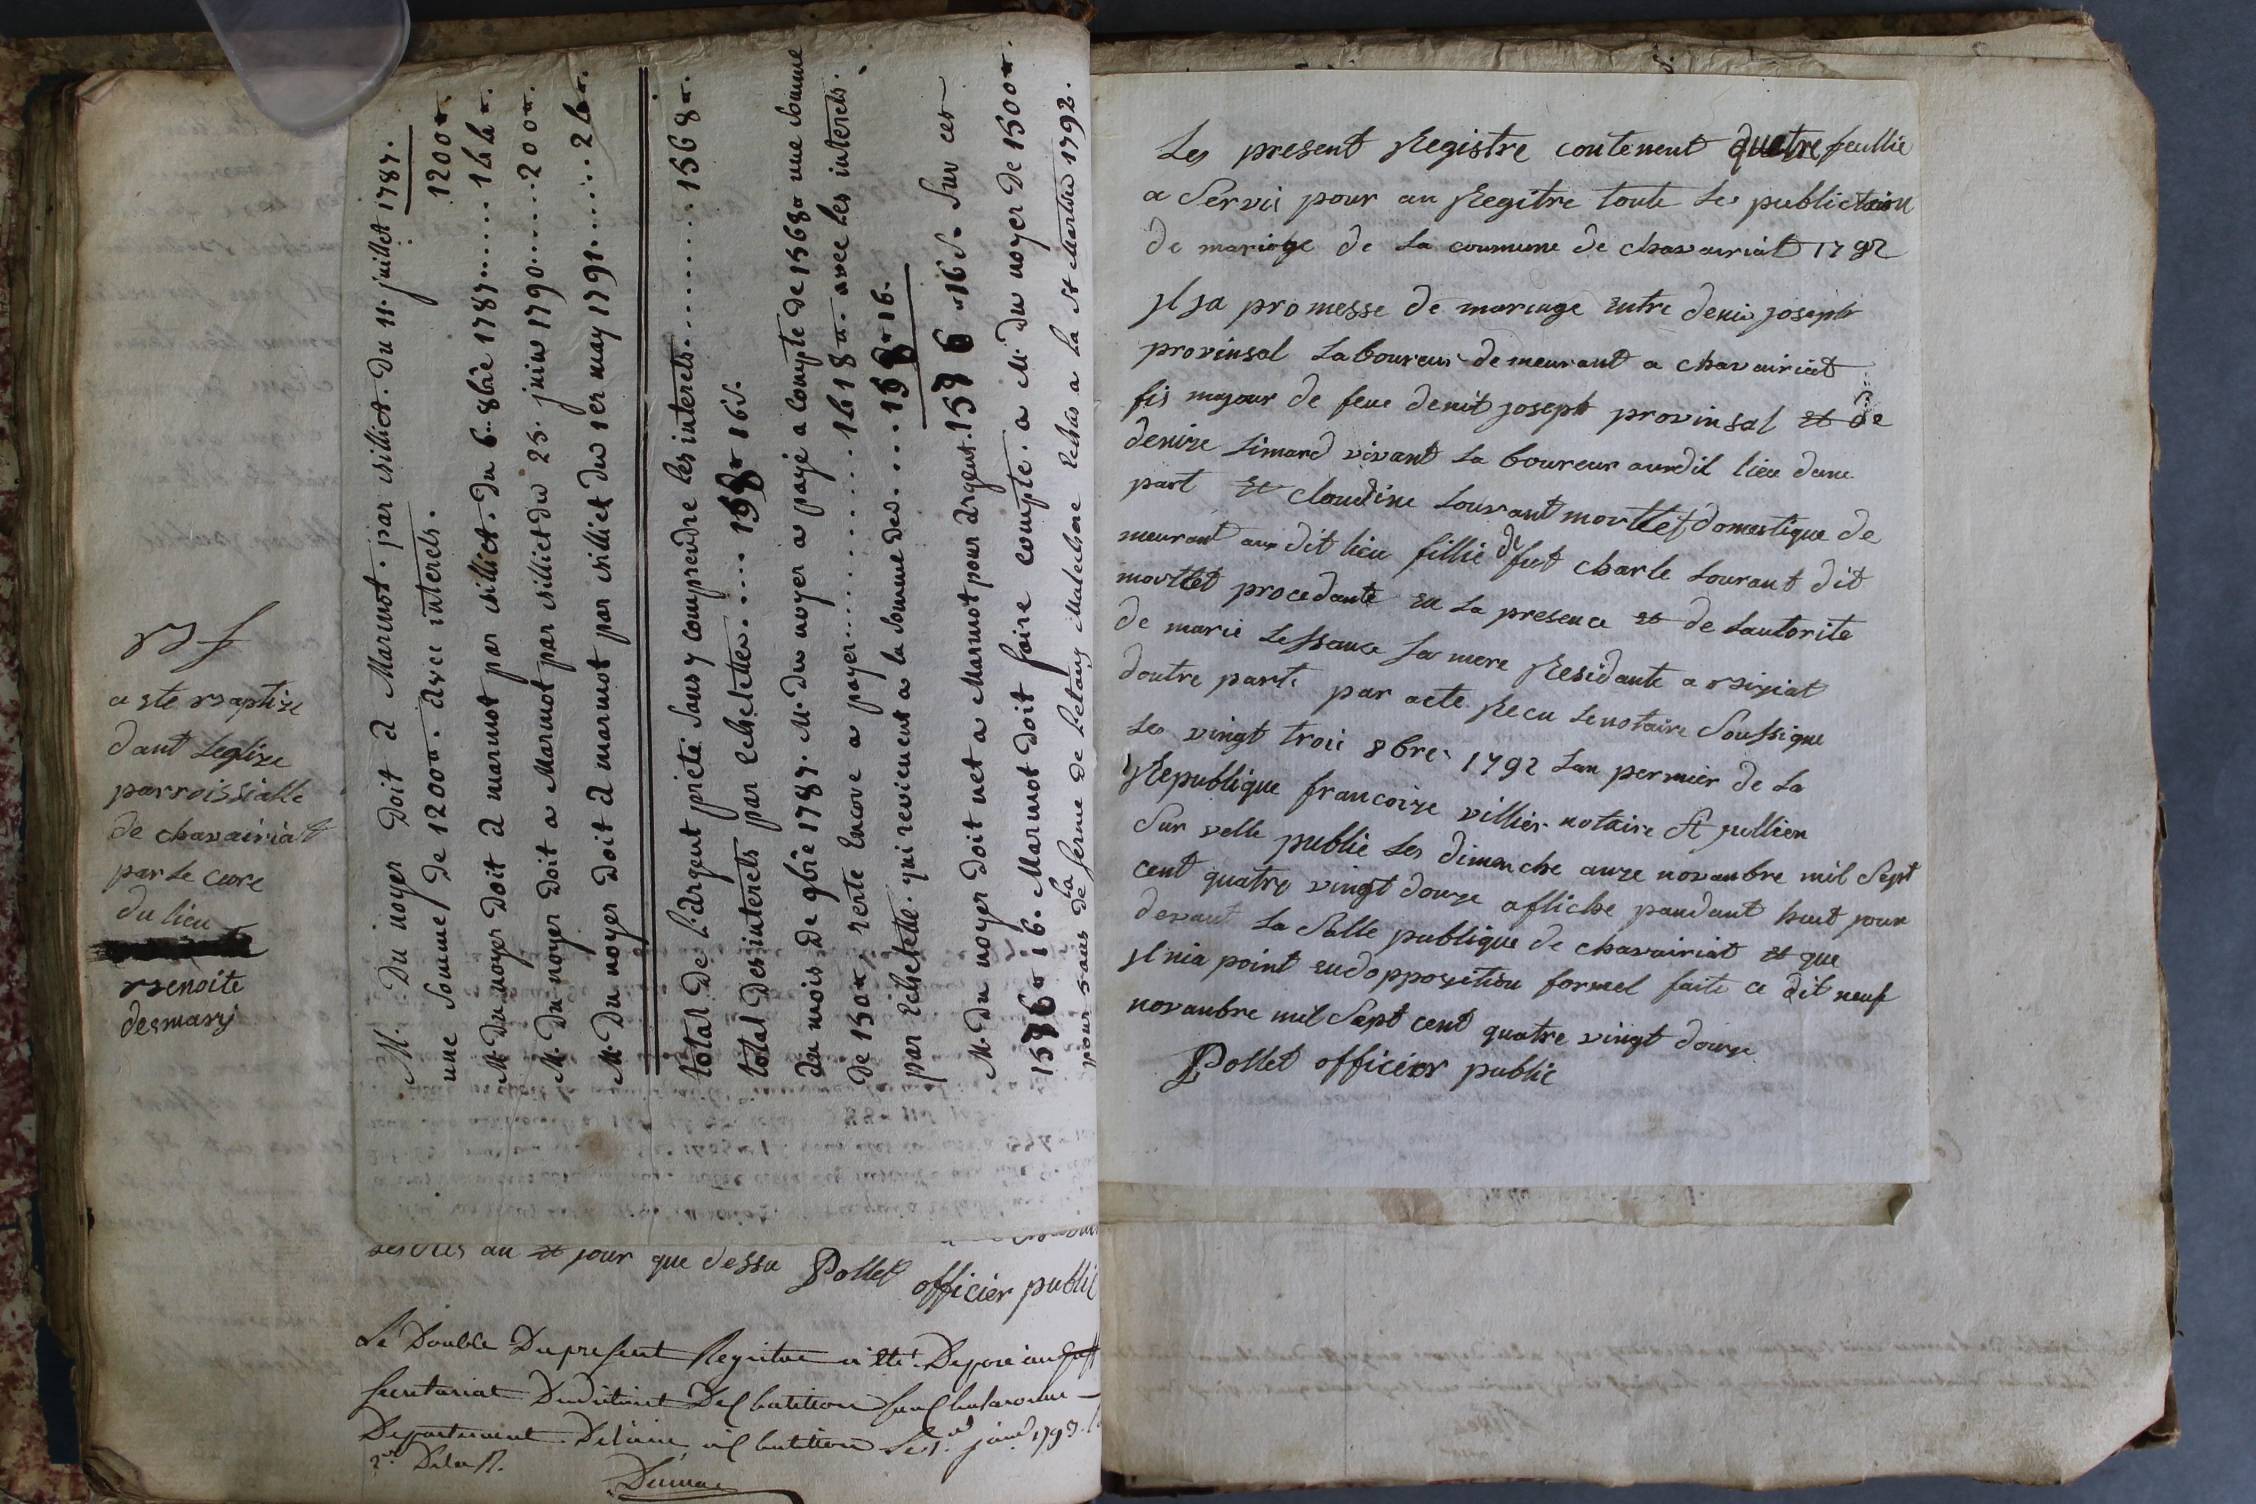 a ete Baptize
dant Leglize
parroissialle
de chavairiat
par Le cure
du lieu
Benoite
desmary
M. Du noyer Doit a Marmot. par billiet. Du 11. juillet 1787.
une Somme De 1200 tt. avec interets. 1200 tt.
M. Du noyer Doit a marmot par billiet. du 6. 8bre 1787...... 144 tt.
M. Du noyer Doit a Marmot par billiet du 25. juin 1790...... 200 tt.
M. Du noyer Doit a marmot par billiet du 1er may 1791...... 24 tt.
total De L'argent prété Sans y comprendre les interets......... 1568 tt.
total Des interets par Echelette..... 168 tt 16 s.
du mois de 9bre 1789. M. Du noyer a payé a compte de 1568 tt une Somme
De 150 tt, reste Encore a payer............ 1418 tt. avec les interets.
par Echelette. qui revienent a la Somme de..... 168 tt 16.
M. Du noyer doit net a Marmot pour argent. 1586 tt 16 s. Sur ces
1586 tt 16. Marmot doit faire compte. a M. Du noyer De 1500 tt.
pour 5 ans de la ferme de L'etang Malechere Echus a la St Martin 1792.
au jour que dessu Pollet
officier public
Le Double Du present Registre a été Deposé au
Secretariat Du district De Chatillon sur Chalaronne
Departement De l'ain, a Chatillon Le 1.er janv. 1793. L
2.e De la R.
Les present Registre contenent quatre feullie
a Servis pour an Regitre toute Les publictaion
de mariage de La coumune de chavairiat 1792
jl ja promesse de mariage entre denis joseph
provinsal Laboureur demeurant a chavairiat
fis majour de feue denit joseph provinsal et de
denize Simard vivant La boureur audil lieu dune
part et cloudine Lourant mortlet domestique de
meurant au dit lieu fillie de fut charle Lourant dit
mortlet procedante en La presence et de Lautorite
de marie Lessance Sa mere Residante a Biziat
doutre part. par acte Recu Le notaire Soussigne
Les vingt troi 8bre 1792 Lan permier de La
Republique francoize villier notaire St jullien
Sur velle publie Les dimanche onze novanbre mil Sept
cent quatre vingt douze affiche pandant huit jour
devant La Salle publique de chavairiat et que
jl nia point eu dopposition formel faite ce dit neuf
novanbre mil Sept cent quatre vingt douze
Pollet officier public